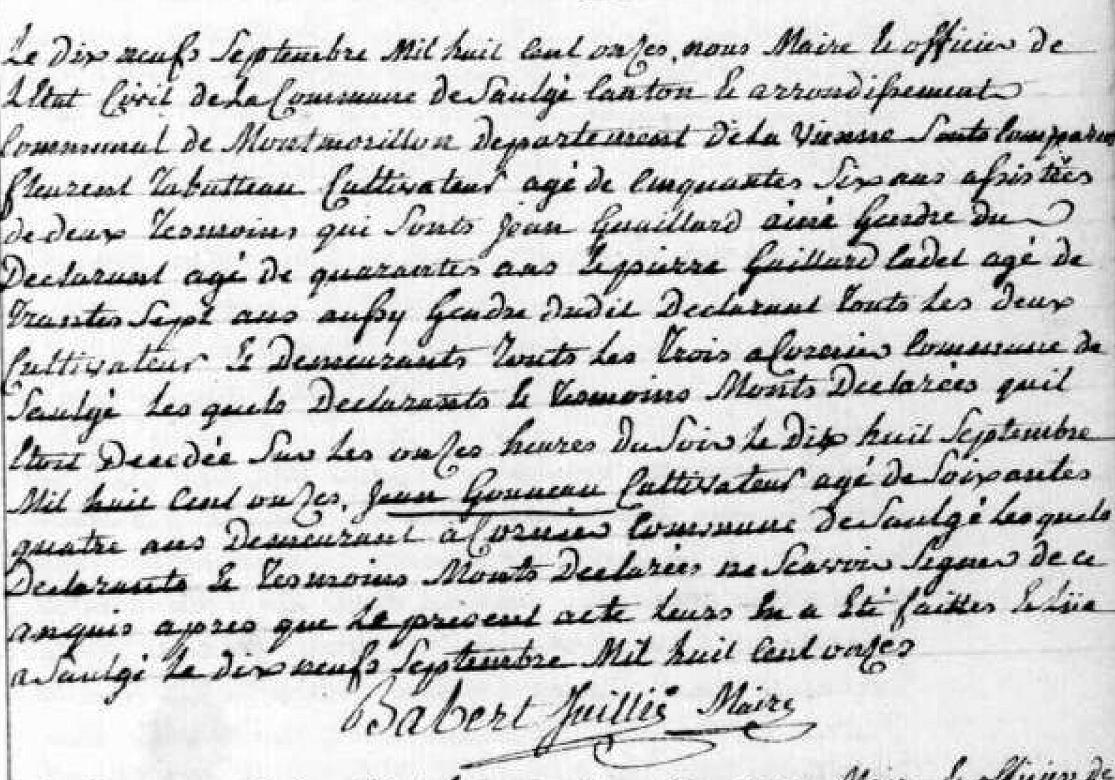 Le dix neufs Septembre Mil huit cent onzes, nous Maire et officier de
L'Etat Civil de La Commune de Saulgé Canton et arrondissement
Communal de Montmorillon departement de la Vienne Sonts Comparus
fleurent Tabutteau Cultivateur agé de Cinquantes Six ans assistées
de deux Tesmoins qui Sonts Jean Guaillard ainé Gendre du
Declarant agé de quarantes ans et pierre Gaillard Cadet agé de
Trantes Sept ans aussy Gendre dudit Declarant touts les deux
Cultivateur et Demeurants touts les Trois a Cornier Commune de
Saulgé les quels Declarants et Tesmoins Monts Declarées quil
Etoit Decedée Sur les onzes heures du Soir Le Dix huit Septembre
Mil huit Cent onzes, Jean Gonneau Cultivateur agé de Soixantes
quatre ans Demeurant à Cornier Commune de Saulgé les quels
Declarants et Tesmoins Monts Declarées ne Scavoir Signer de ce
anquis apres que Le present acte leurs En a Eté faittes Letüe
a Saulgé Le dix neufs Septembre Mil huit Cent onzes
Babert Juillié Maire
Maire et officier de